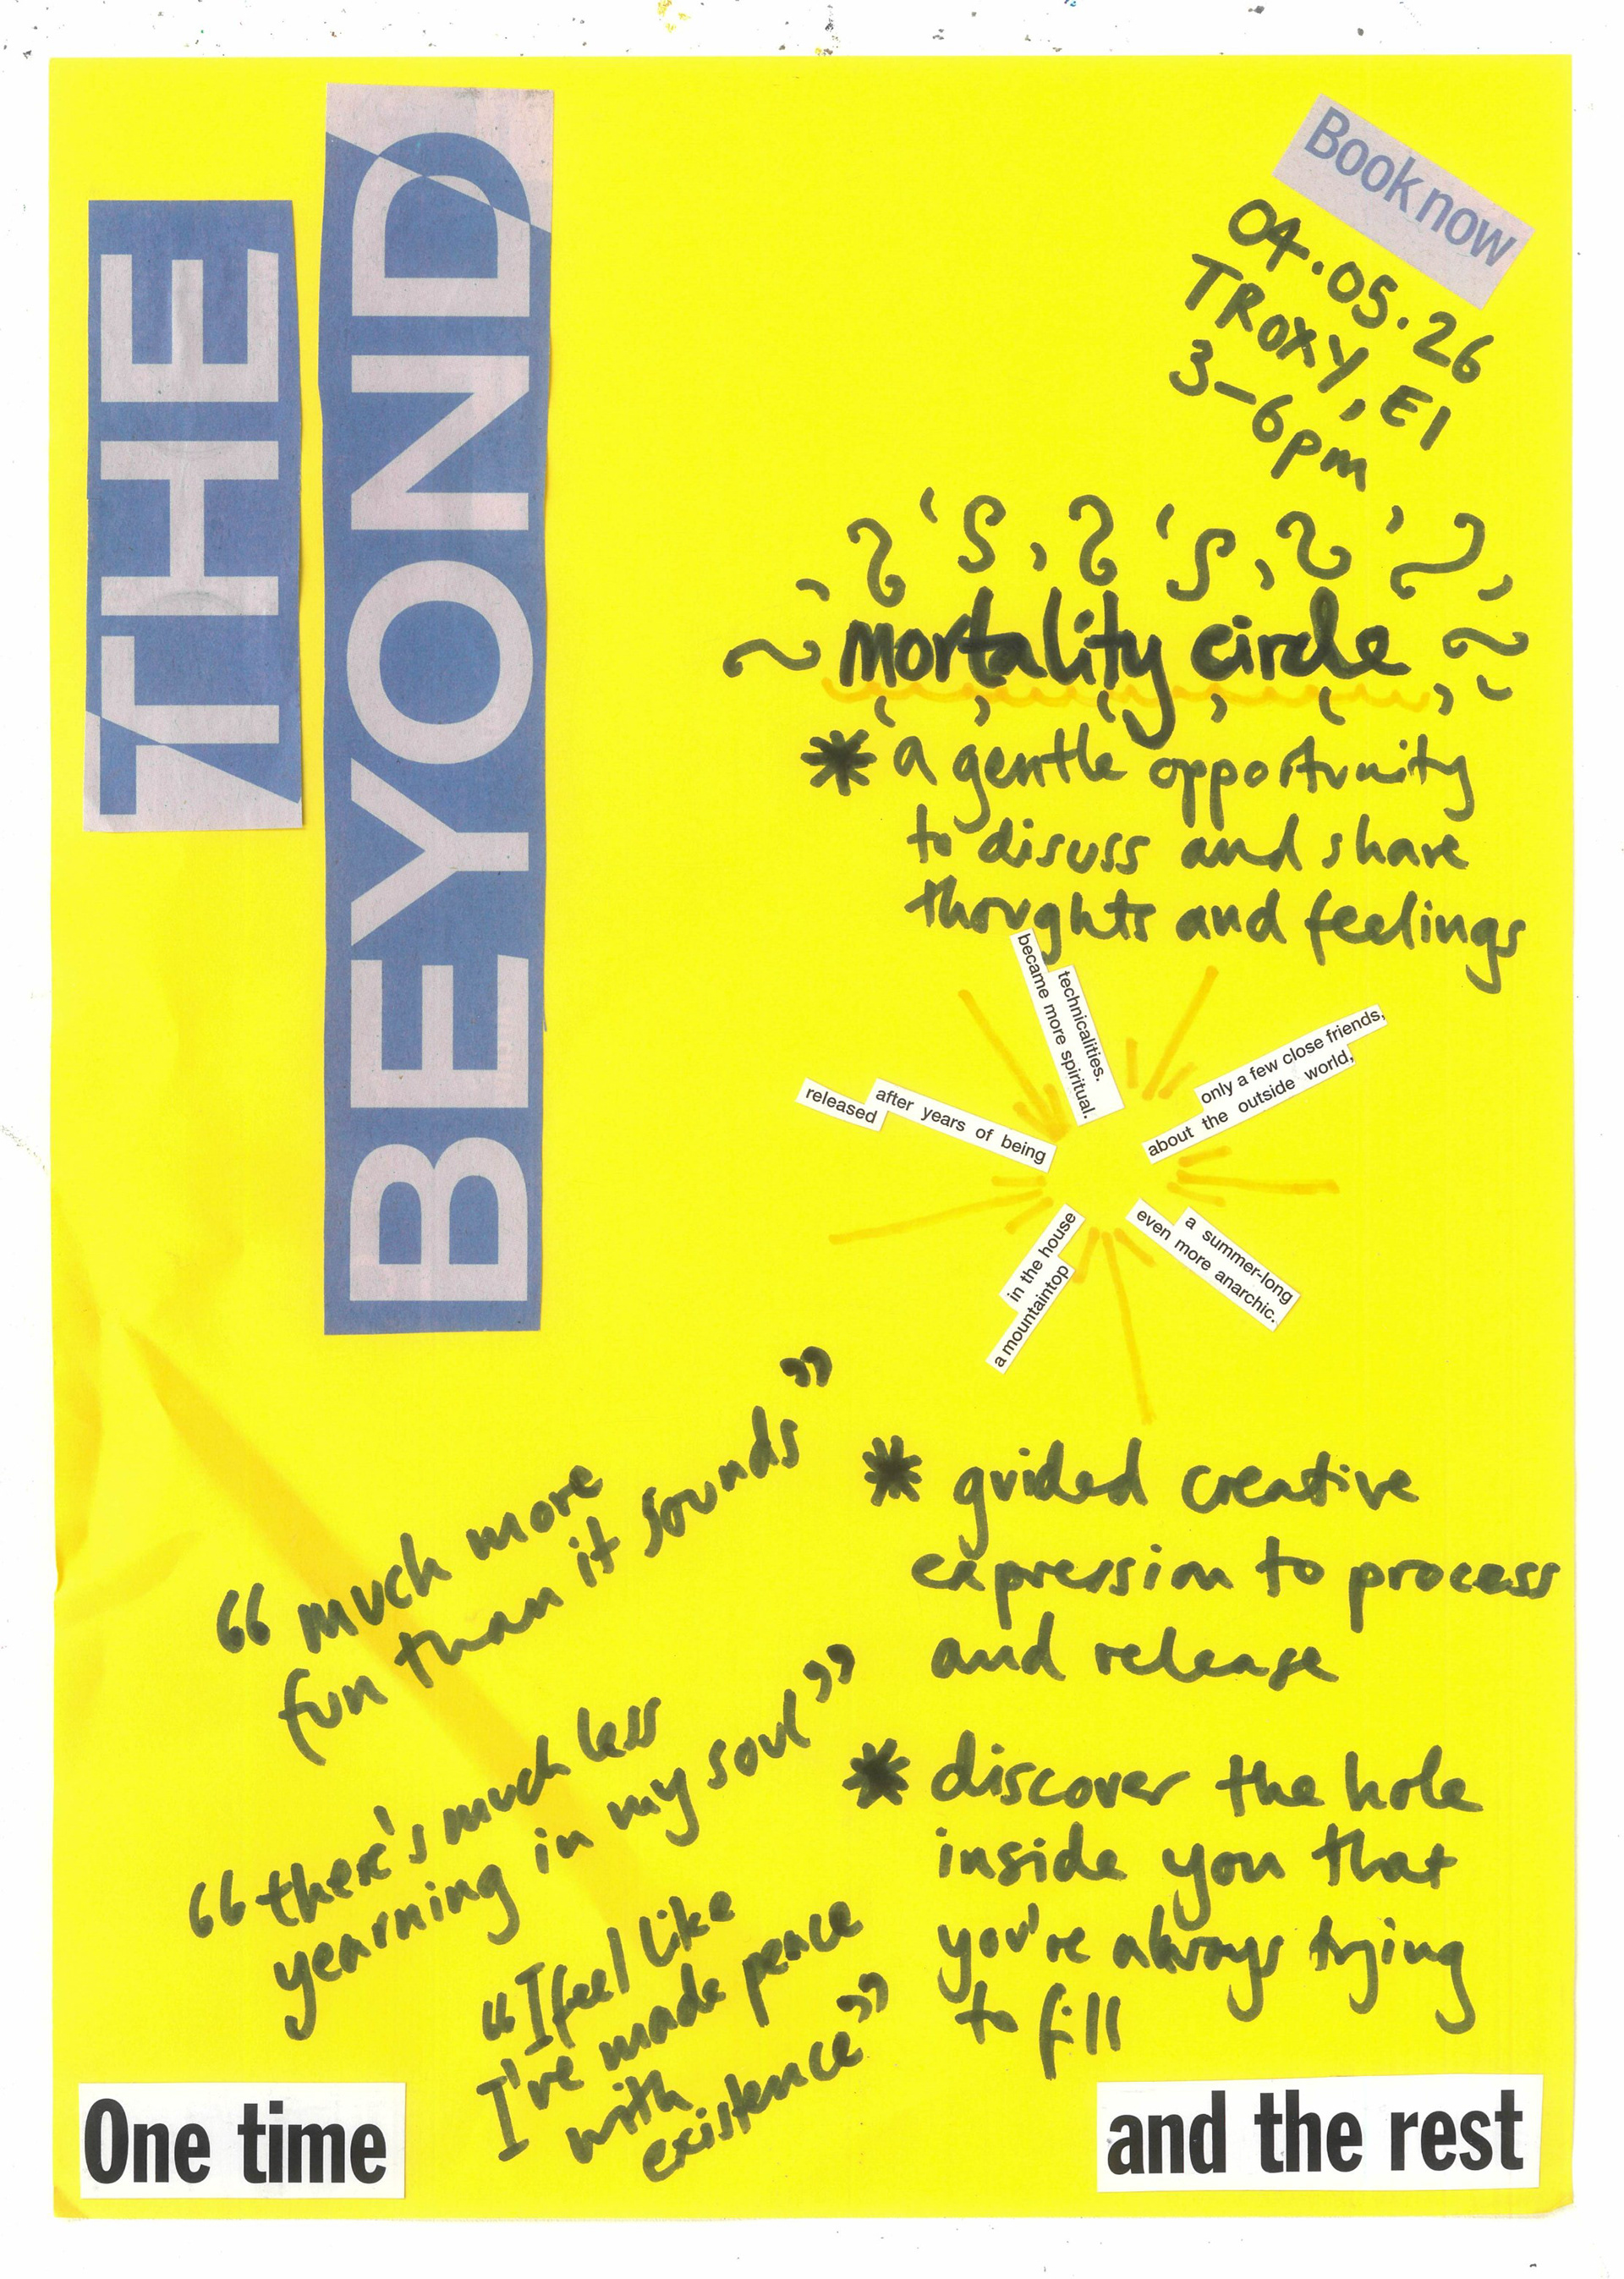 THE
BEYOND
Book now
04.05.26
TROXY, E1
3–6pm
mortality circle
* a gentle opportunity
to discuss and share
thoughts and feelings
technicalities.
became more spiritual.
only a few close friends,
about the outside world,
after years of being
released
in the house
a mountaintop
a summer-long
even more anarchic.
“much more
fun than it sounds”
“there's much less
yearning in my soul”
“I feel like
I've made peace
with
existence”
* guided creative
expression to process
and release
* discover the hole
inside you that
you're always trying
to fill
One time
and the rest